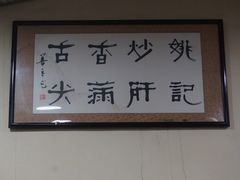 姚記
炒肝
香滿
古尖